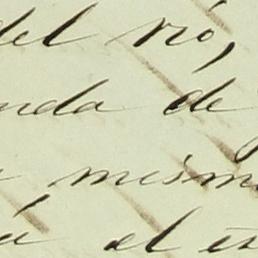 del rió,
nda de
mism
á el es